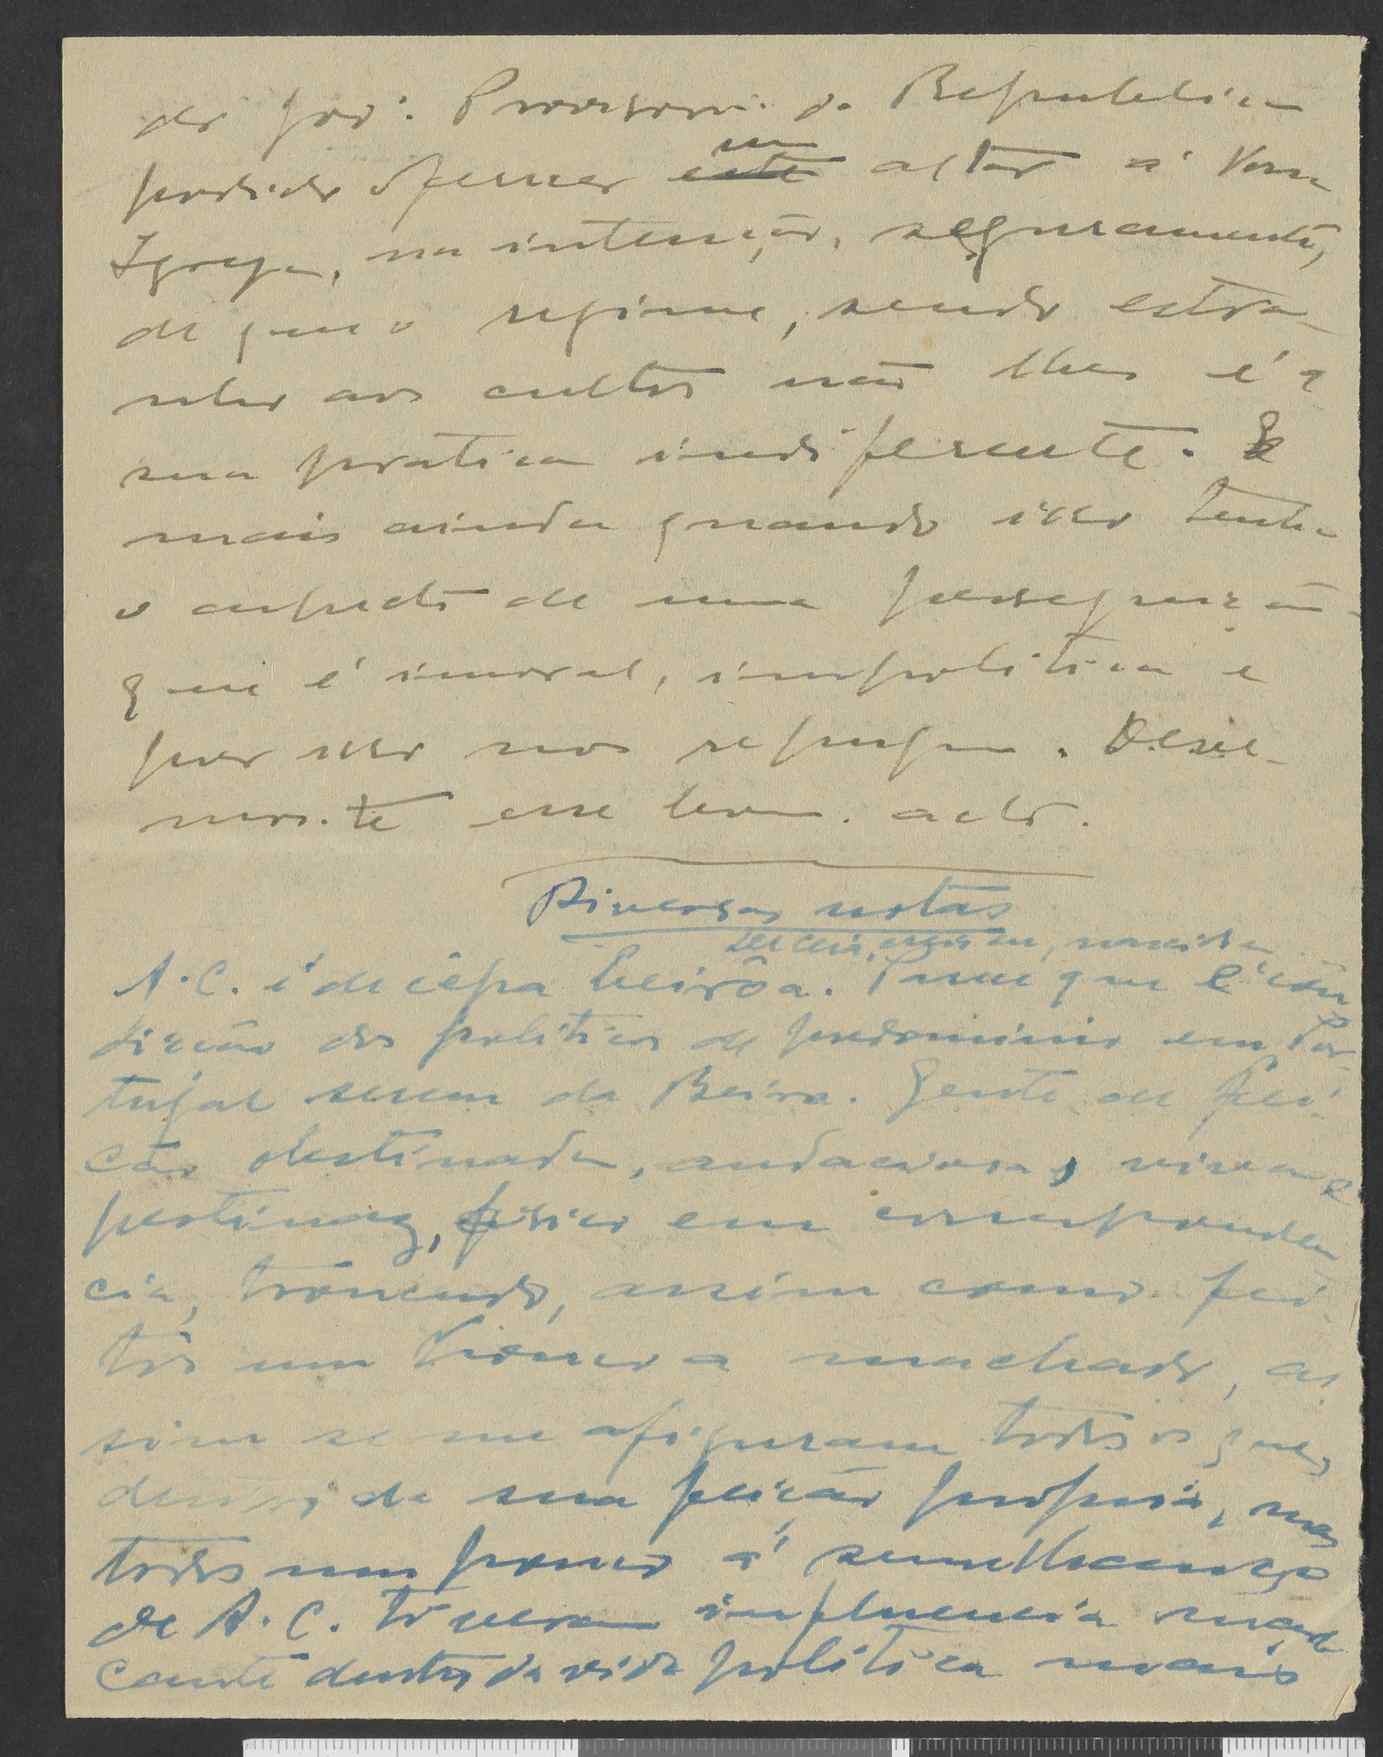 do gov: Provisorio da Republica
podido oferecer este um altar á Vossa
Igreja, na intenção, seguramente,
de que o regime, sendo estra-
nho aos cultos não lhes é a
sua pratica indiferente. E
mais ainda quando isso tenha
o aspecto de uma perseguição
que é imoral, impolitica e
por isso nos repugna.
esse acto.
Diversas notas
A.C. é de cêpa beirôa. Parece que é con
dição dos politicos de predominio em Por
tugal serem da Beira. Gente de fei-
ção obstinada, audaciosa, viva e
pertinaz, fisico em corresponden
cia, troncudo, assim como fei
tos um tronco a machado, as
sim se me afiguram todos os que,
dentro da sua feição propria, mas
todos um pouco á semelhança
de A.C. tiveram influencia
dentro da vida politica mais